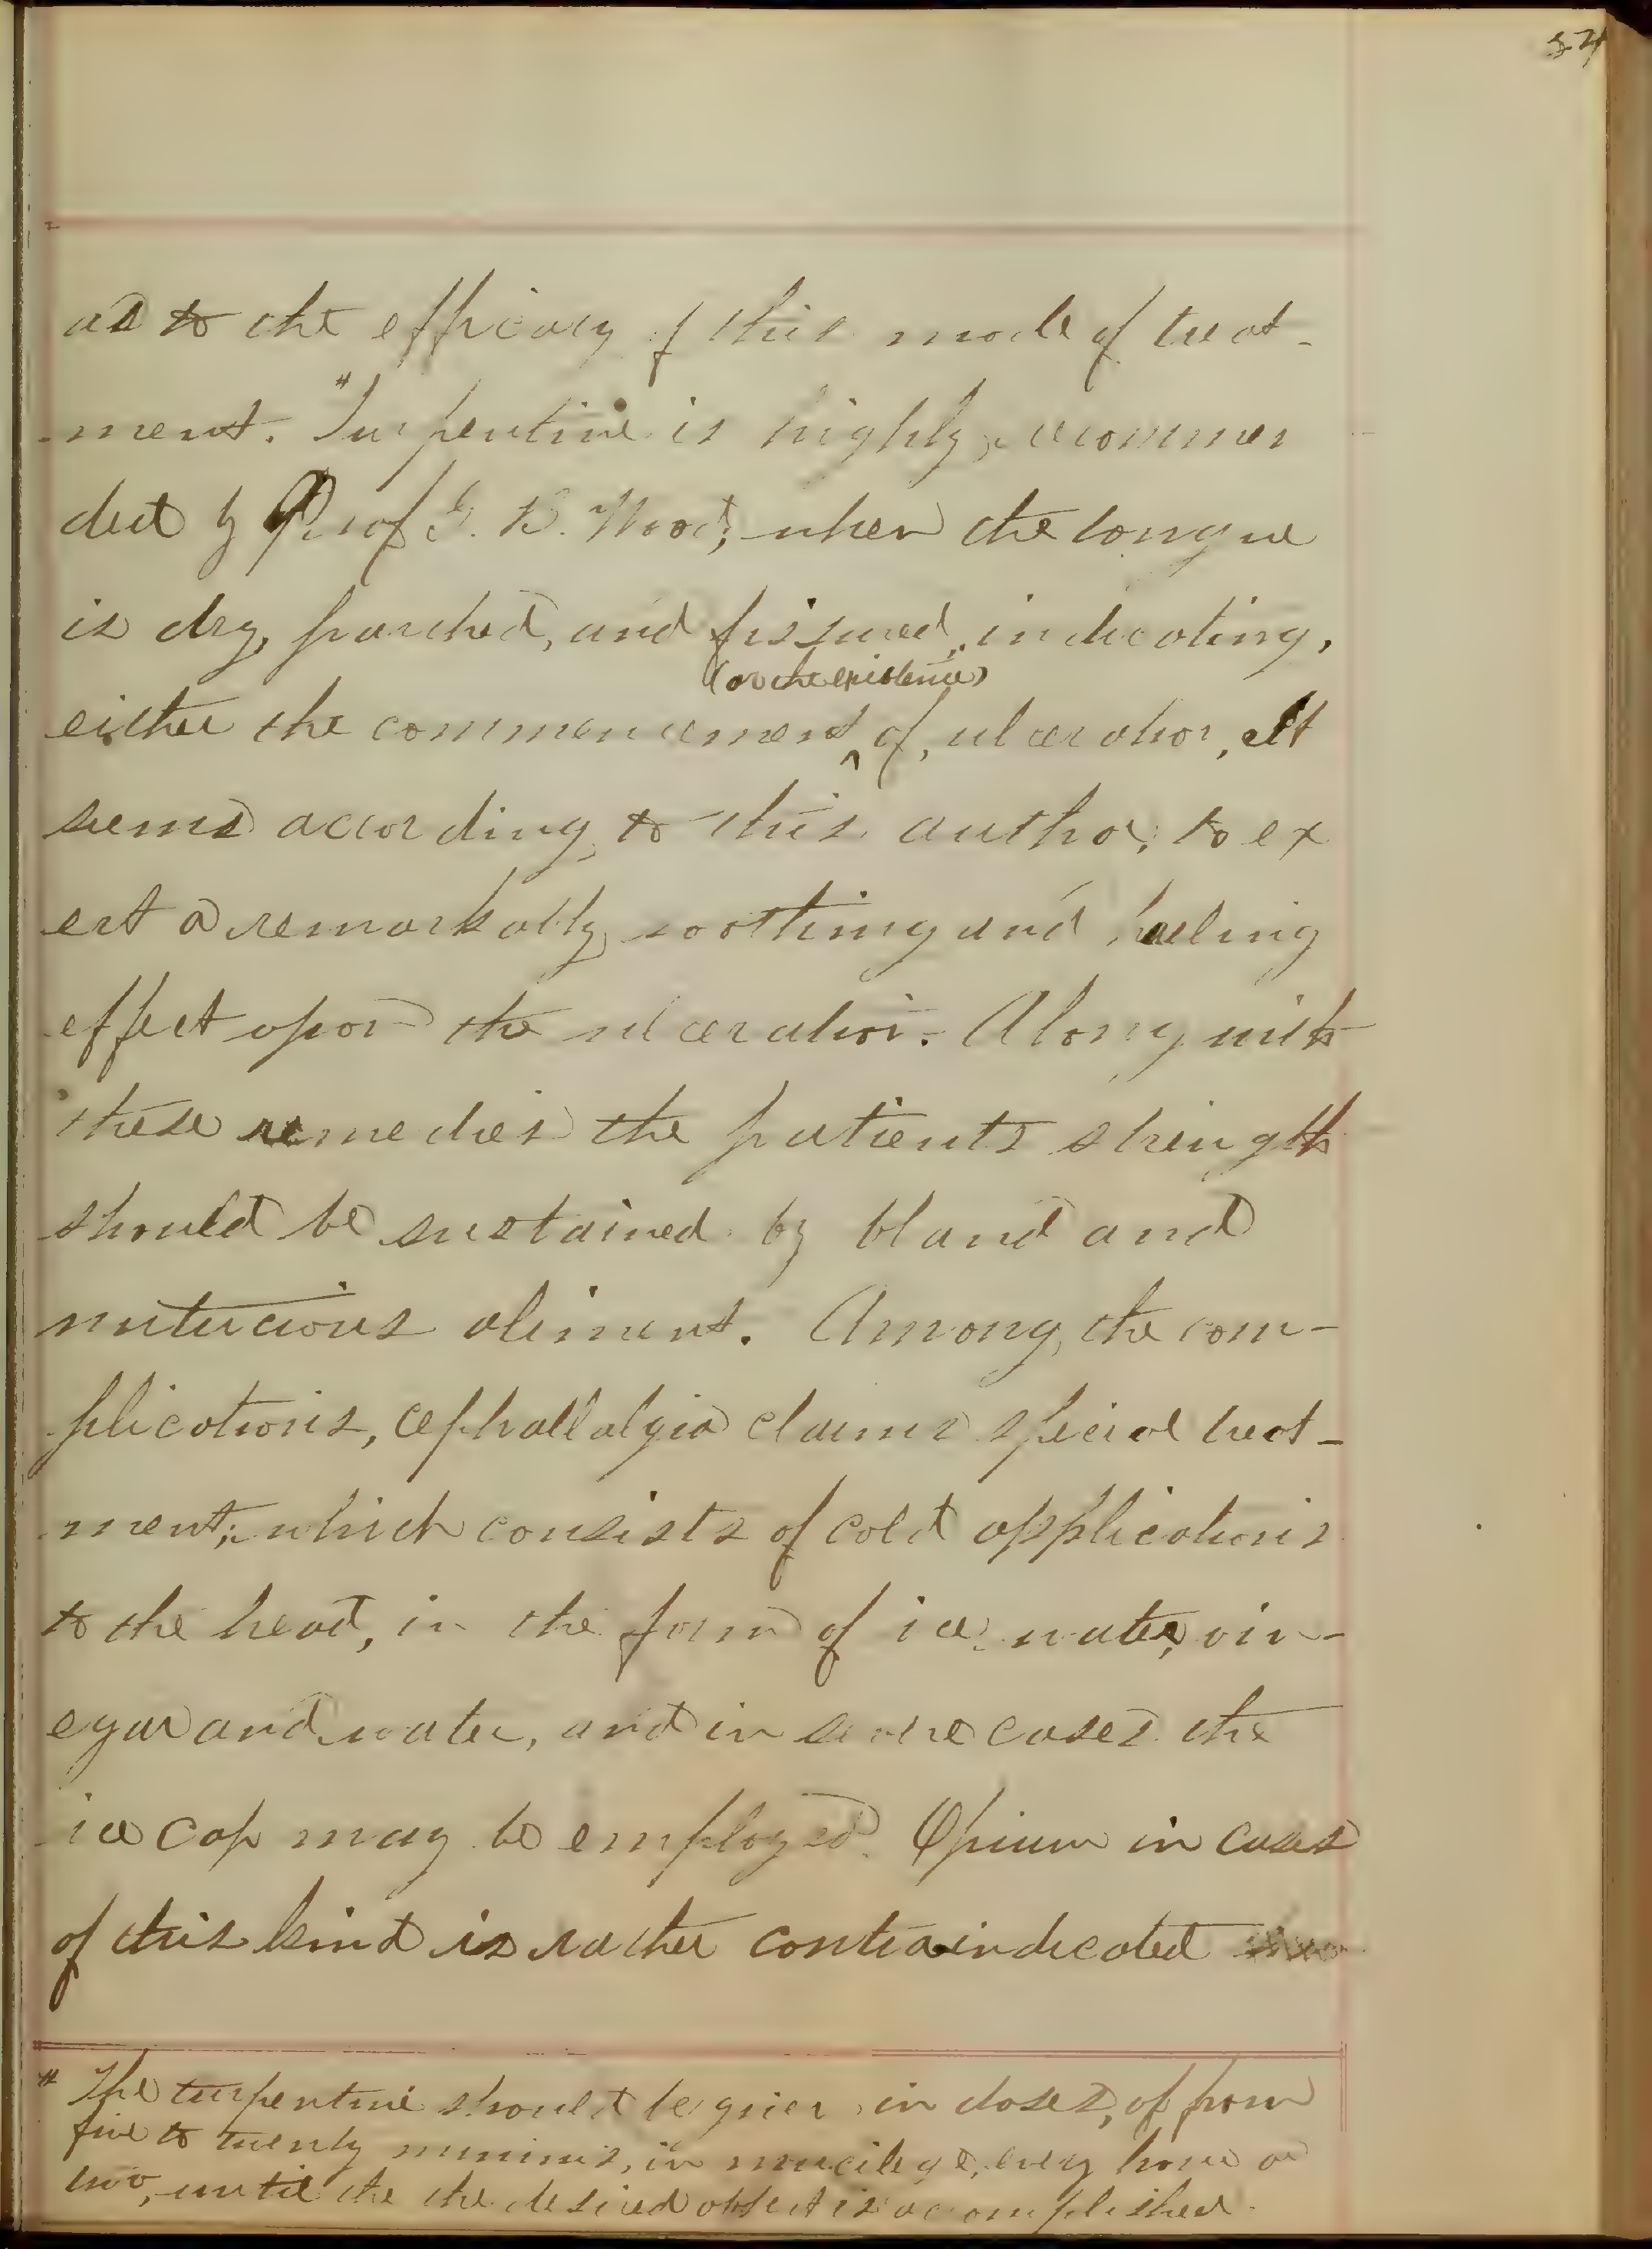 54
as to the efficacy of this mode of treat-
-ment. #Turpentine is highly recommen
ded by Prof G. B. Wood; when the tongue
is dry, parched, and fissured, indicating,
(or the existence)
either the commencement ^ of, ulceration, It
seems according to this author, to ex
ert a remarkably soothing and healing
effect upon the ulceration. Along with
these remedies the patients strength
should be sustained by bland and
nutricious aliment. Among the com-
plications, cephallalgia claims special treat-
ment; which consists of cold applications
to the head, in the form of ice, water, vin-
egar and water, and in severe cases the
ice cap may be employed. Opium in cases
of this kind is rather contraindicated
# The turpentine should be given in doses, of from
five to twenty minims, in mucilage, every hour or
two, until the the desired object is accomplished.